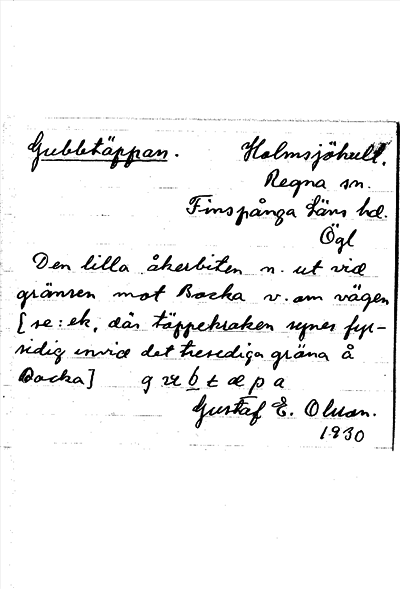 Gubbtäppan.
Holmsjöhult.
Regna sn.
Finspånga läns hd.
Ögl
Den lilla åkerbiten n. ut vid
gränsen mot Backa v. om vägen
[se: ek, där täppekraken synes fyr-
sidig invid det tresidiga gräna å
Backa]
Gustaf E. Olsson.
1930